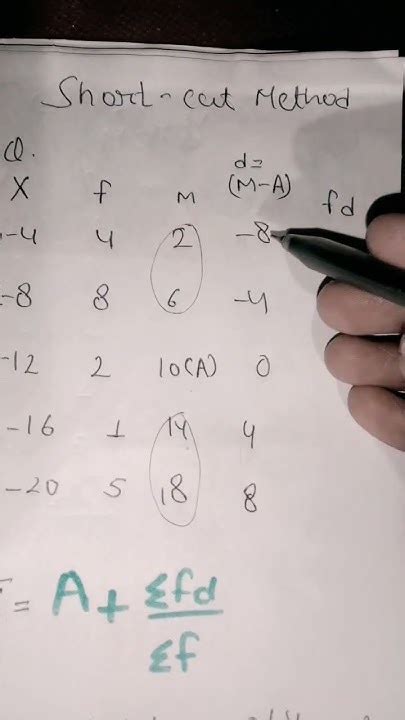 Short-cut Method
Q.
d=
X f M (M-A) fd
-4 4 2 -8
-8 8 6 -4
-12 2 10(A) 0
-16 1 14 4
-20 5 18 8
= A + Σfd
Σf